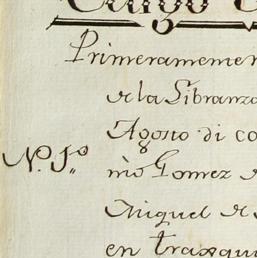 Cargo
Primeramente
de la Libranza
Agosto di co
N.º 1.º mō Gomez
Miguel de
en traxqui